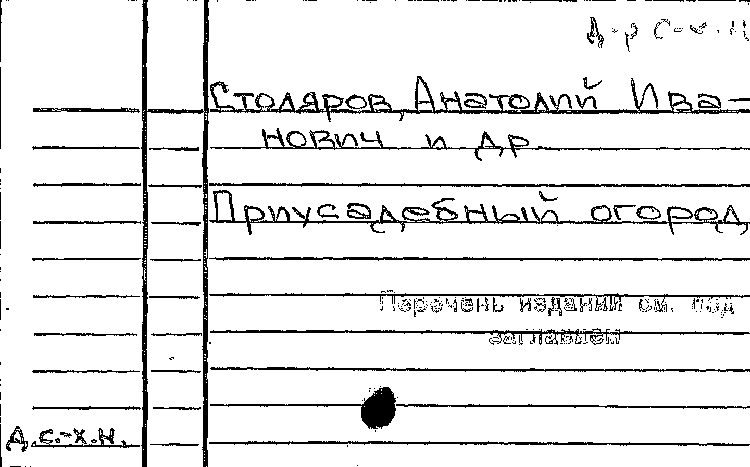 Д-р С-х. н
Столяров, Анатолий Ива-
нович и др
Приусадебный огород,
Перечень изданий см. под
заглавием
Д.с.-х.н.